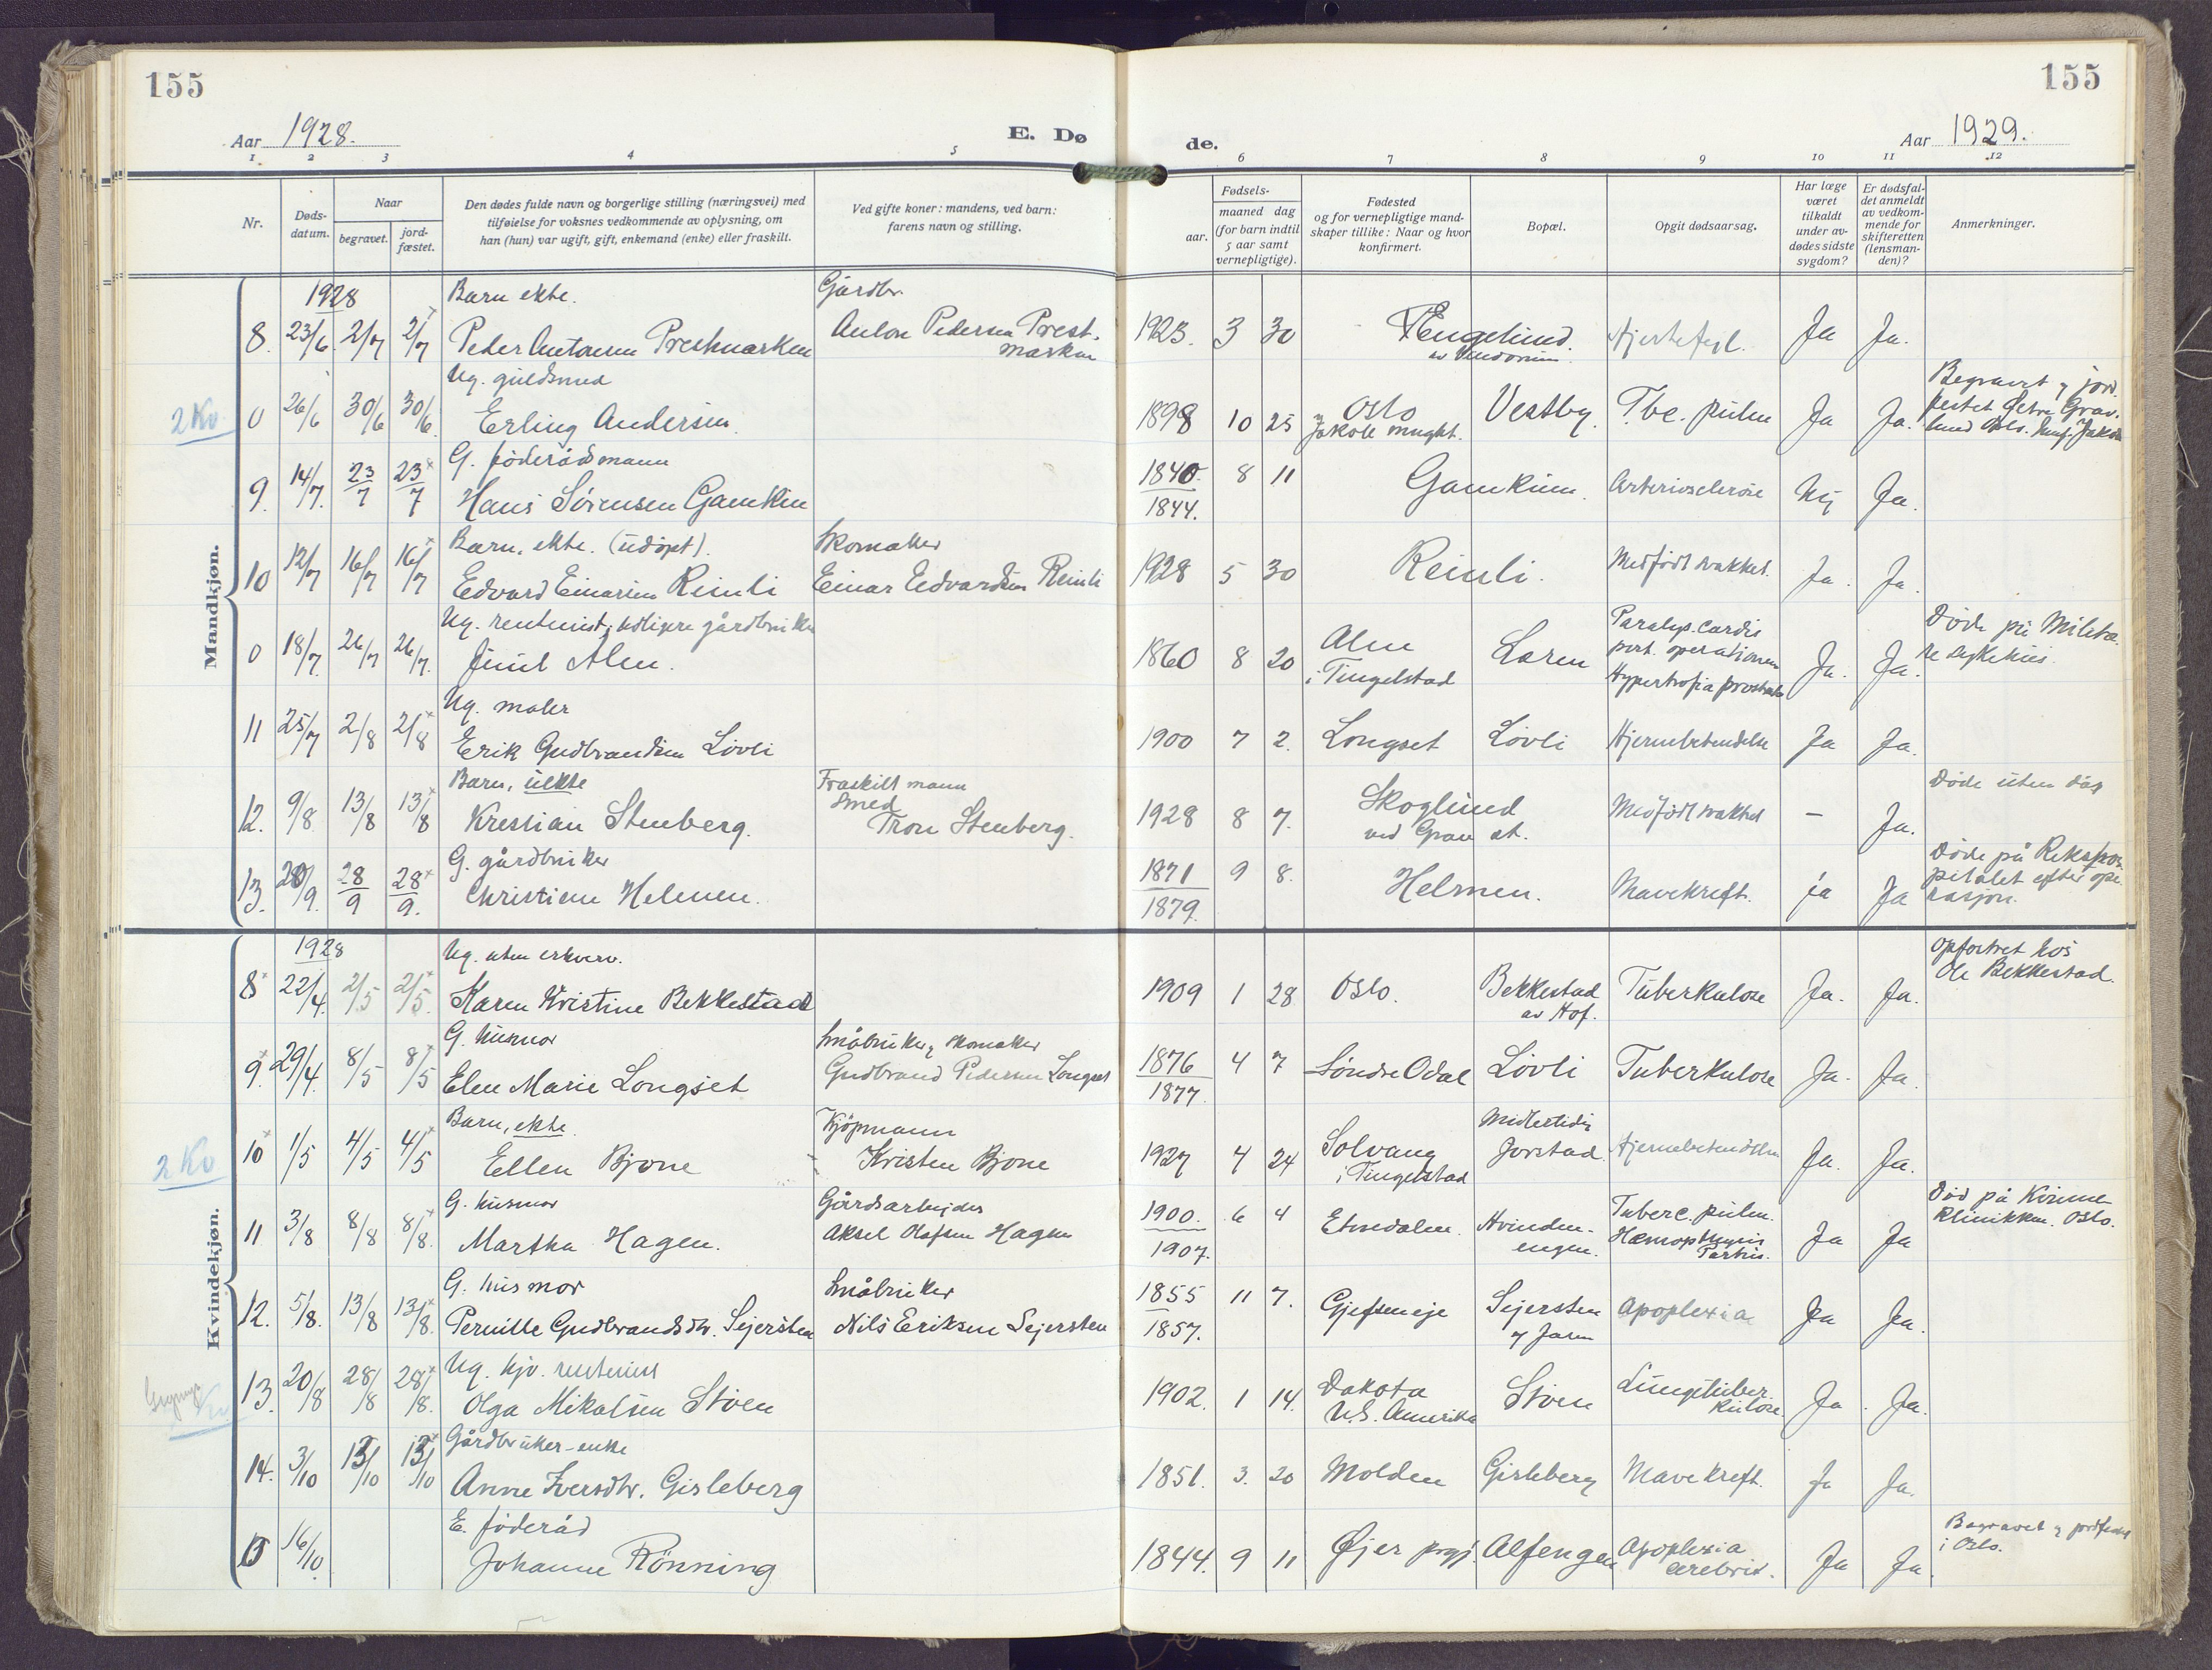 155
155
Aar 1928.
E. Dø
de.
Aar 1929.
1 2 3 4 5 6 7 8 9 10 11 12
Nr.
Døds-
datum.
Naar
begravet.
jord-
fæstet.
Den dødes fulde navn og borgerlige stilling (næringsvei) med
tilføielse for voksnes vedkommende av oplysning, om
han (hun) var ugift, gift, enkemand (enke) eller fraskilt.
Ved gifte koner: mandens, ved barn:
farens navn og stilling.
Fødsels-
aar.
maaned dag
(for barn indtil
5 aar samt
vernepligtige).
Fødested
og for vernepligtige mand-
skaper tillike: Naar og hvor
konfirmert.
Bopæl.
Opgit dødsaarsag.
Har læge
været
tilkaldt
under av-
dødes sidste
sygdom?
Er dødsfal-
det anmeldt
av vedkom-
mende for
skifteretten
(lensman-
den)?
Anmerkninger.
Mandkjøn.
1928 Barn ekte. Gårdbr.
8. 23/6 2/7 2/7 Peder Antonsen Prestmarken Anton Pedersen Prest-
marken 1923. 3 30 Engelund. Hjertefeil. Ja Ja.
2 Kv
Ug. guldsmed
0 26/6 30/6 30/6 Erling Andersen. 1898 10 25 Oslo
Jakob mnght. Vestby. Tbc. pulm Ja Ja. Begravet og jord-
festet Østre Grav-
lund Oslo.
G. føderådsmann
9. 14/7. 23/7 23/7 Hans Sørensen Gamkin 1840. 8 11 Gamkinn. Arteriosclerose Nej Ja.
1844.
Barn, ekte. (udøpt). Skomaker
10 12/7 16/7 16/7 Edvard Einarsen Reinli Einar Edvardsen Reinli 1928 5 30 Reinli. Medfødt svakhet. Ja. Ja.
Ug. rentenist, tidligere gårdbruker
0 18/7 26/7 26/7. Juul Alm. 1860 8 20 Alm
i Tingelstad Loren Paralys. cordis
post. operationem
Hypertrofia prostata Ja. Ja. Døde på Militæ-
re sykehus.
Ug. maler
11 25/7 2/8 2/8 Erik Gudbrandsen Løvli 1900 7 2. Longset Løvli Hjernebetendelse Ja Ja.
Barn, uekte Fraskilt mann
Smed
12. 9/8 13/8 13/8 Kristian Stenberg. Tron Stenberg. 1928 8 7. Skoglund
ved Gran st. Medfødt svakhet — Ja. Døde uten dåp
G. gårdbruker
13. 20/9. 28/9 28/9. Christian Helmen. 1871 9 8. Helmen. Mavekreft. ja Ja Døde på Rikshos-
pitalet efter ope-
rasjon.
1879.
Kvindekjøn.
1928 Ug. uten erhverv.
8 22/4. 2/5 2/5. Karen Kristine Bekkestad 1909 1 28 Oslo. Bekkestad
av Hof. Tuberkulose Ja. Ja. Opfostret hos
Ole Bekkestad.
G. husmor Småbruker og skomaker
9. 29/4. 8/5 8/5 Elen Marie Longset Gudbrand Pedersen Longset 1876 4 7 Søndre Odal Løvli Tuberkulose Ja. Ja.
1877.
2 Kv
Barn, ekte. Kjøpmann
10 1/5 4/5 4/5 Ellen Bjone Kristen Bjone 1927 4 24 Solvang
i Tingelstad Midlertidig
Jorstad. Hjernebetendelse Ja. Ja.
G. husmor Gårdsarbejder
11 3/8 8/8 8/8. Martha Hagen. Aksel Olafsen Hagen 1900. 6 4 Etnedalen. Hvinden-
engen. Tuberc. pulm.
Hæmopthysis Ja Ja Død på Kvinne-
klinikken. Oslo.
1907.
G. husmor Småbruker
12. 5/8. 13/8 13/8. Pernille Gudbrandsdtr. Sejersten Nils Eriksen Sejersten 1855 11 7. Gjefseneje Sejersten Apoplexia Ja Ja.
1857.
Kv
Ug. hjv. rentenist
13. 20/8 28/8 28/8. Olga Mikalsen Støen 1902. 1 14. Dakota
U.S. Amerika Støen Lungetuber-
kulose Ja Ja.
Gårdbruker-enke
14. 3/10 13/10 13/10 Anne Iversdtr. Gisleberg 1851. 3. 20 Molden Gisleberg Mavekreft. Ja Ja.
E. føderåd
16/10. Johanne Rønning 1844. 9 11 Øjer prgj. Alfengen Apoplexia
cerebris. Ja Ja. Begravet og jordfestet
i Oslo.